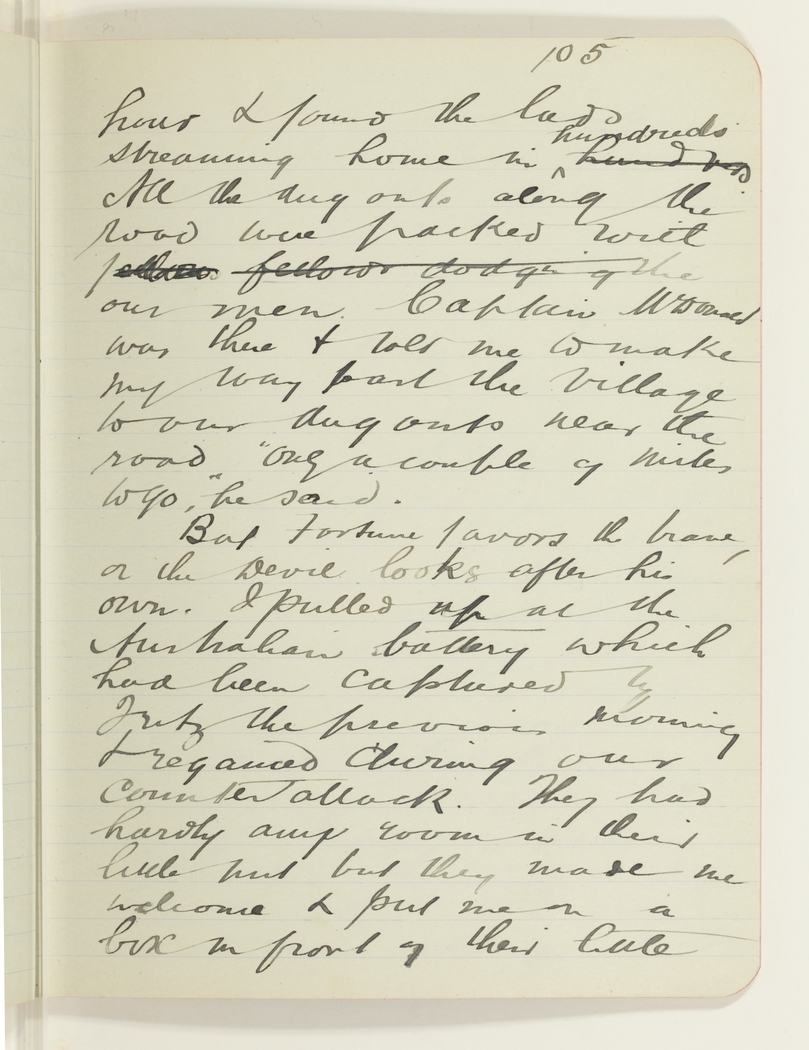 105
hour & found the lads
streaming home in hundreds hundreds
All the dug outs along the
road were packed with
fellows fellows dodging the
our men. Captain McDonald
was there & told me to make
my way past the village
to our dug outs near the
road "only a couple of miles
to go," he said.
But Fortune favors the brave,
or the Devil looks after his
own. I pulled up at the
Australian battery which
had been captured by
Fritz the previous morning
& regained during our
counter attack. They had
hardly any room in their
little hut but they made me
welcome & put me on a
box in front of their little